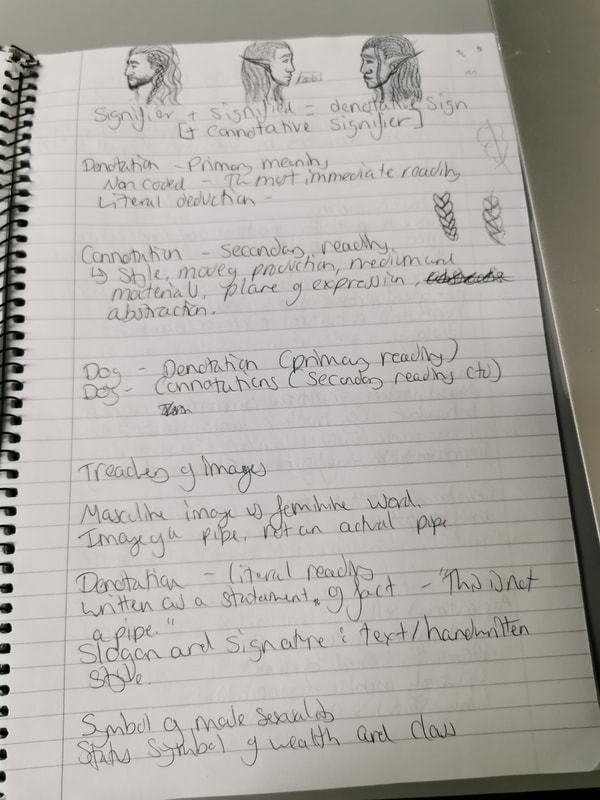 Signifier + signified = denotative sign
[+ connotative signifier]
Denotation - Primary meaning
Non coded - Th most immediate reading
Literal deduction -
Connotation - secondary reading.
↳ Style, modes production, medium and
materials, plane of expression,
abstraction.
Dog - Denotation (primary reading)
Dog - Connotations (secondary reading (tu)
Treachery of images
Masculine image vs feminine word.
Image of a pipe, not an actual pipe
Denotation - literal reading
written as a statement of fact - "This is not
a pipe."
Slogan and signature : text/handwritten
style.
Symbol of male sexuality
Status symbol of wealth and class